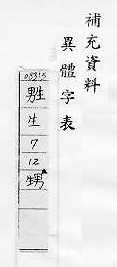 補充資料
異體字表
05315
男生
生
7
12
甥